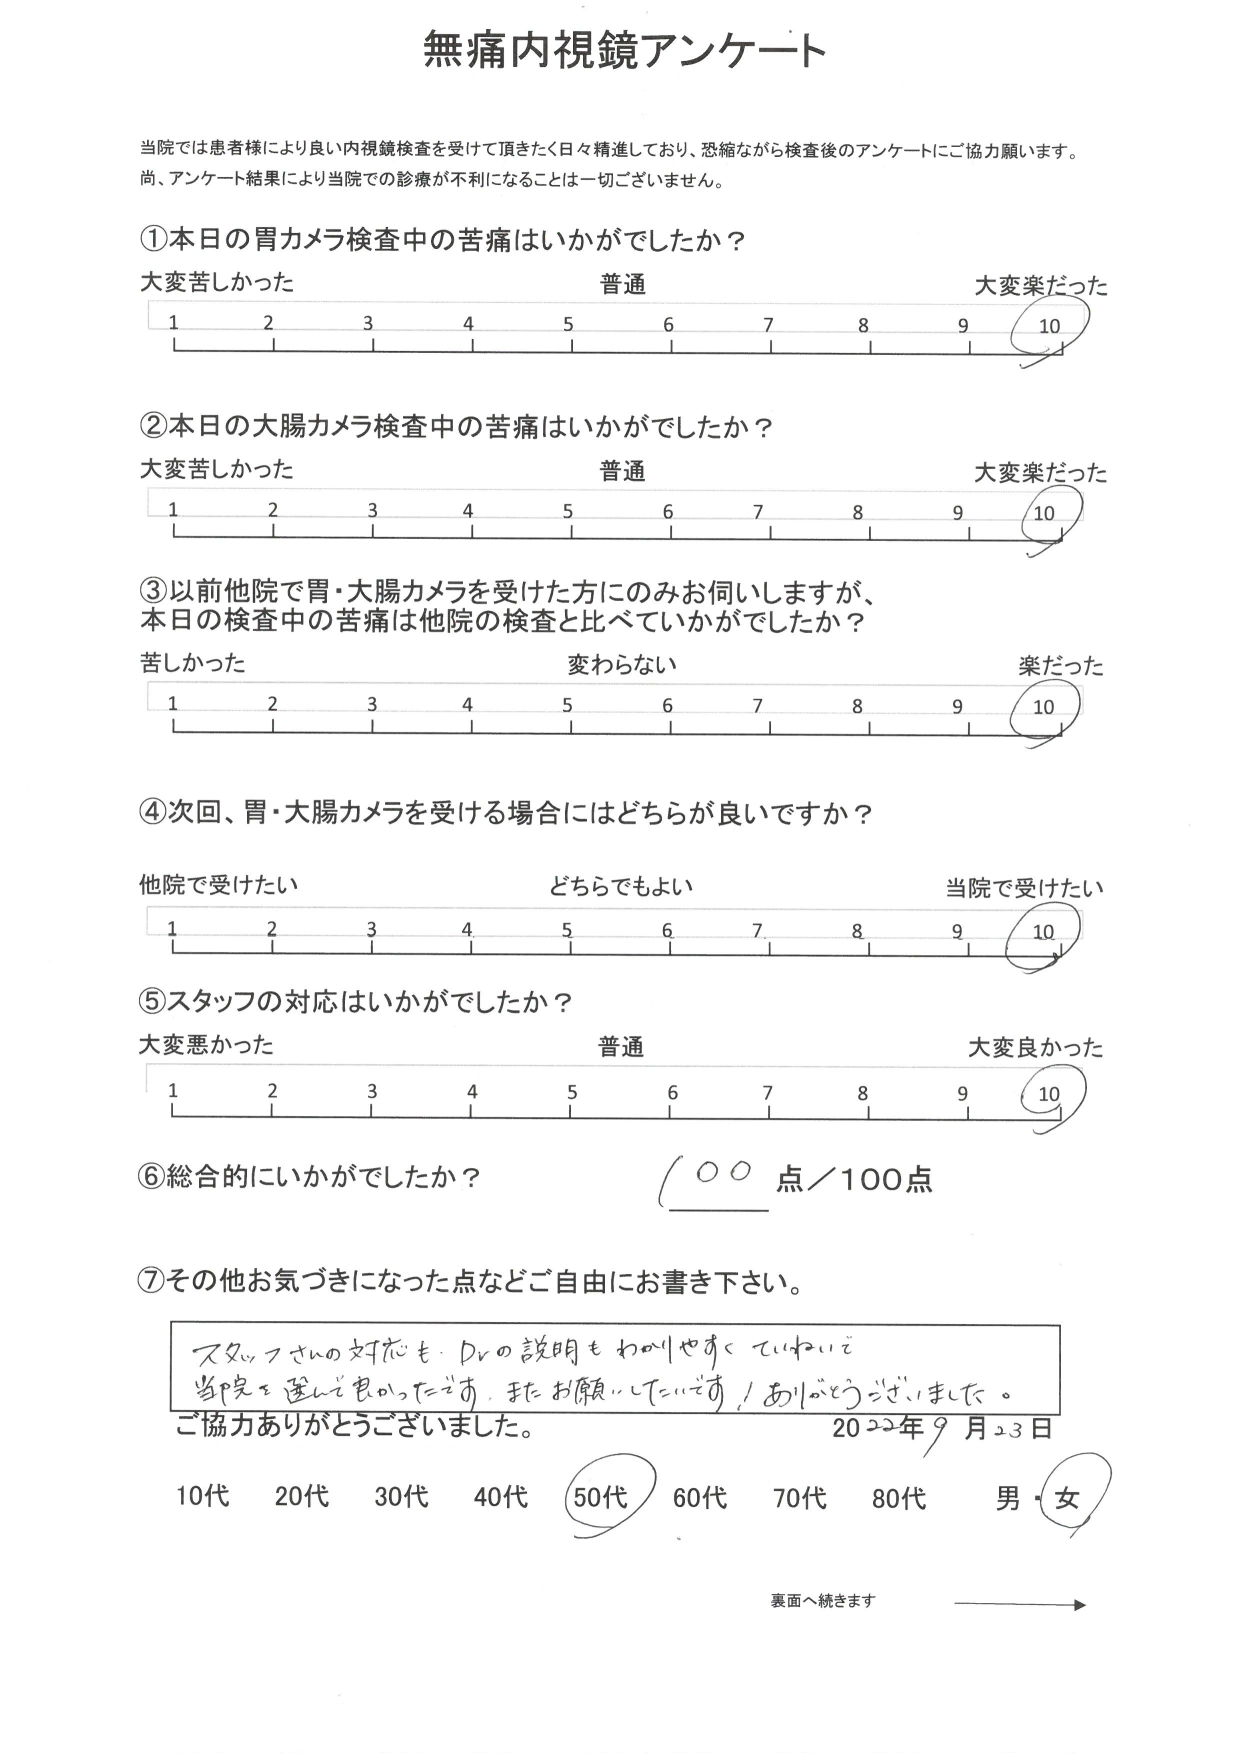 無痛内視鏡アンケート
当院では患者様により良い内視鏡検査を受けて頂きたく日々精進しており、恐縮ながら検査後のアンケートにご協力願います。
尚、アンケート結果により当院での診療が不利になることは一切ございません。
①本日の胃カメラ検査中の苦痛はいかがでしたか？
大変苦しかった 普通 大変楽だった
1 2 3 4 5 6 7 8 9 10
②本日の大腸カメラ検査中の苦痛はいかがでしたか？
大変苦しかった 普通 大変楽だった
1 2 3 4 5 6 7 8 9 10
③以前他院で胃・大腸カメラを受けた方にのみお伺いしますが、
本日の検査中の苦痛は他院の検査と比べていかがでしたか？
苦しかった 変わらない 楽だった
1 2 3 4 5 6 7 8 9 10
④次回、胃・大腸カメラを受ける場合にはどちらが良いですか？
他院で受けたい どちらでもよい 当院で受けたい
1 2 3 4 5 6 7 8 9 10
⑤スタッフの対応はいかがでしたか？
大変悪かった 普通 大変良かった
1 2 3 4 5 6 7 8 9 10
⑥総合的にいかがでしたか？ 100 点／100点
⑦その他お気づきになった点などご自由にお書き下さい。
スタッフさんの対応も Drの説明も わかりやすく ていねいで
当院を選んで良かったです。またお願いしたいです！ありがとうございました。
ご協力ありがとうございました。 2022年9月23日
10代 20代 30代 40代 50代 60代 70代 80代 男・女
裏面へ続きます